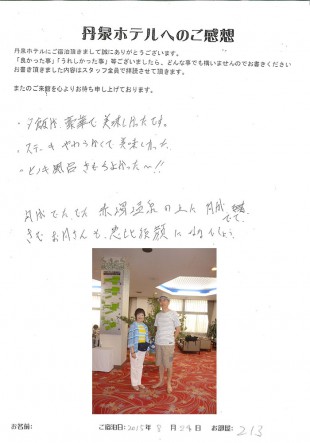 丹泉ホテルへのご感想
丹泉ホテルにご宿泊頂きまして誠にありがとうございます。
「良かった事」「うれしかった事」等ございましたら、どんな事でも構いませんのでお書きください
お書き頂きました内容はスタッフ全員で拝読させて頂きます。
またのご来館を心よりお待ち申し上げております。
・夕飯が豪華で美味しかったです。
・ステーキやわらかくて美味しかった
・ヒノキ風呂きもちよかった〜!!
赤湯温泉の上に
お月さんも
お名前:
ご宿泊日:2015年8月24日
お部屋:213